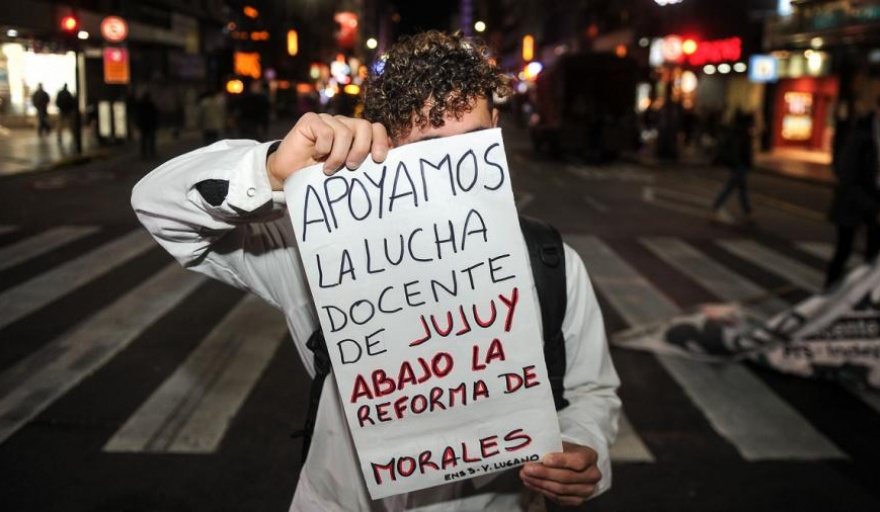 APOYAMOS
LA LUCHA
DOCENTE
DE JUJUY
ABAJO LA
REFORMA DE
MORALES
ENS 3-V. LUGANO